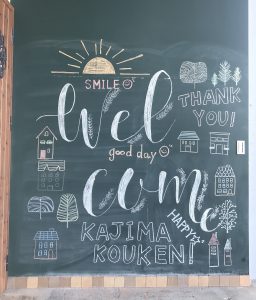 SMILE
Wel
THANK
YOU!
good day
come
HAPPY
KAJIMA
KOUKEN!